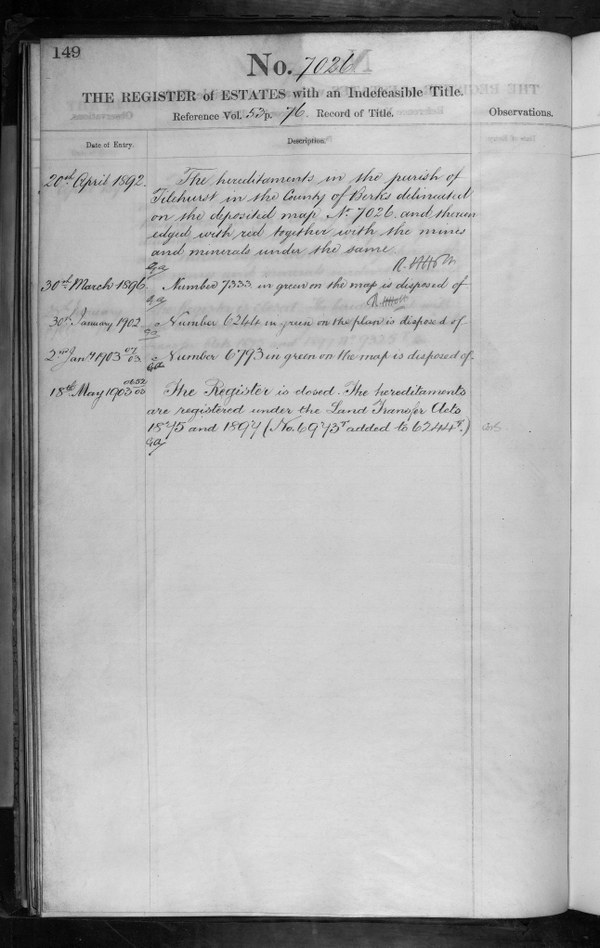 149
No. 7026
THE REGISTER of ESTATES with an Indefeasible Title.
Reference Vol. 53 p. 76. Record of Title.
Observations.
Date of Entry.
Description.
20th April 1892.
The hereditaments in the parish of
Tilehurst in the County of Berks delineated
on the deposited map No 7026 and thereon
edged with red together with the mines
and minerals under the same
30th March 1896
Number 7333 in green on the map is disposed of
30th January 1902
Number 6244 in green on the plan is disposed of
2nd Jany 1903
Number 6793 in green on the map is disposed of
18th May 1903
The Register is closed. The hereditaments
are registered under the Land Transfer Acts
1875 and 1897 (No. 6973T added to 6244T.)